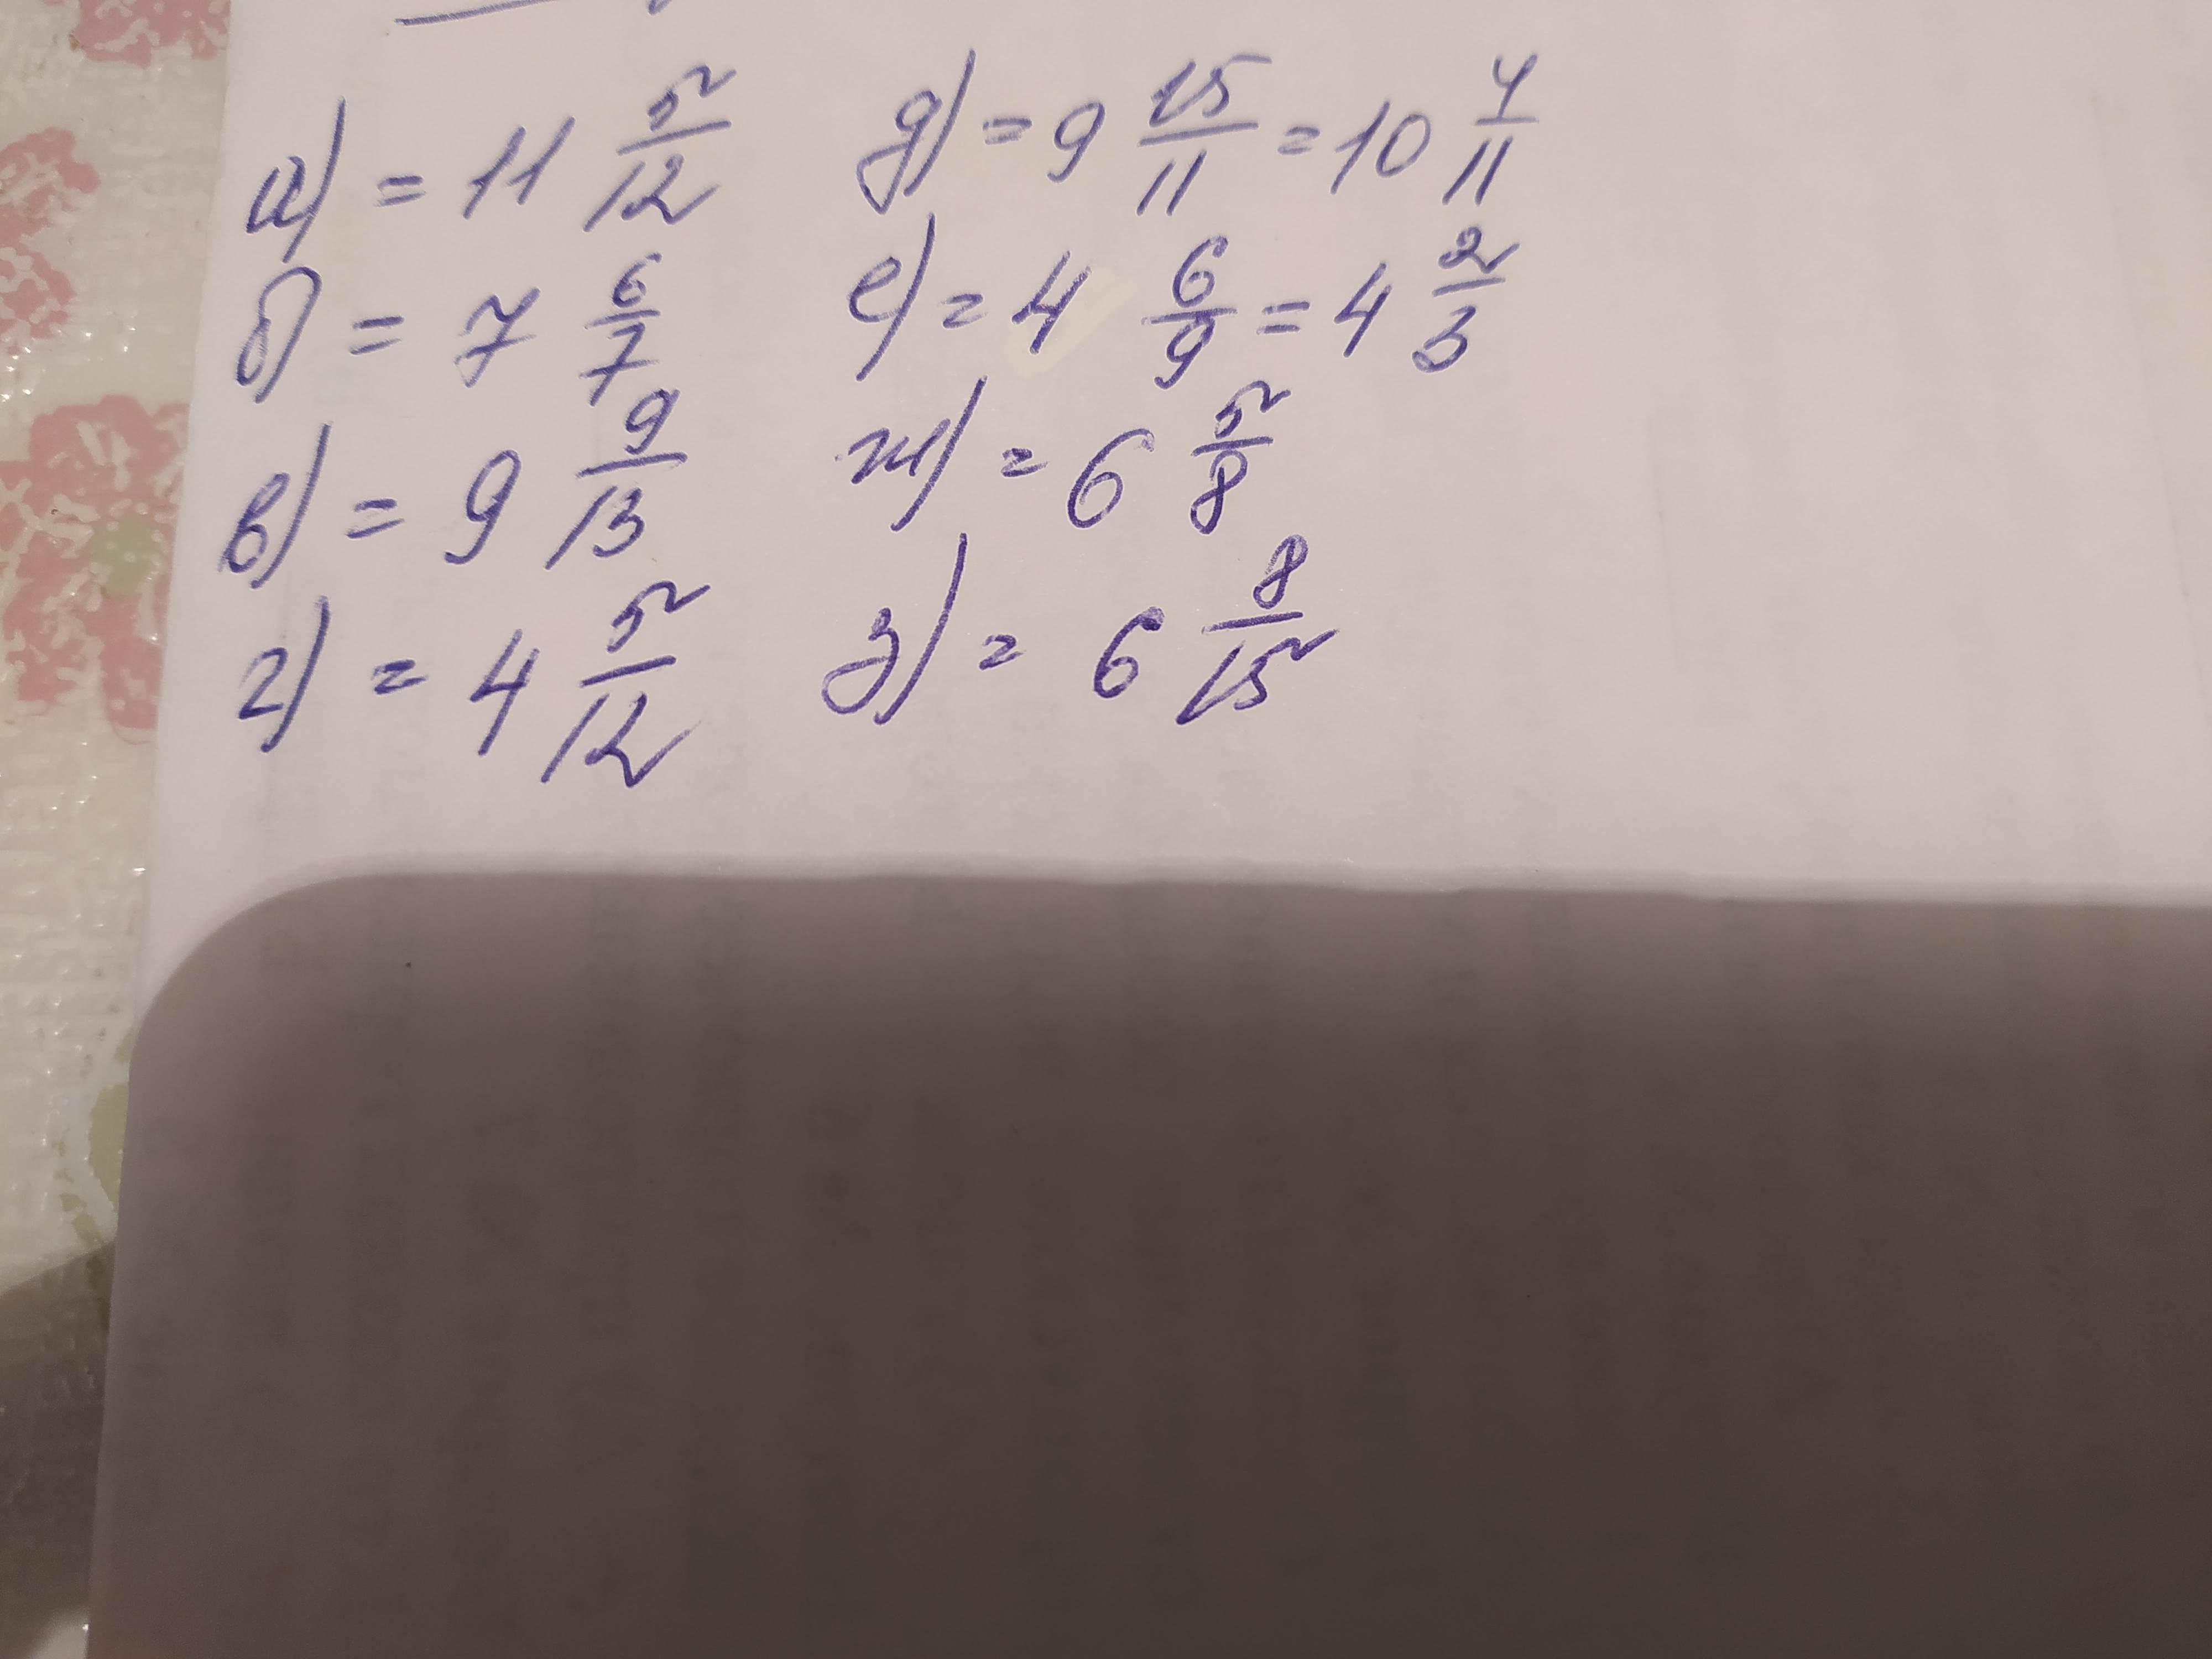 а) = 11 5/12
б) = 7 6/7
в) = 9 9/13
г) = 4 5/12
д) = 9 15/11 = 10 4/11
е) = 4 6/9 = 4 2/3
ж) = 6 5/8
з) = 6 8/15